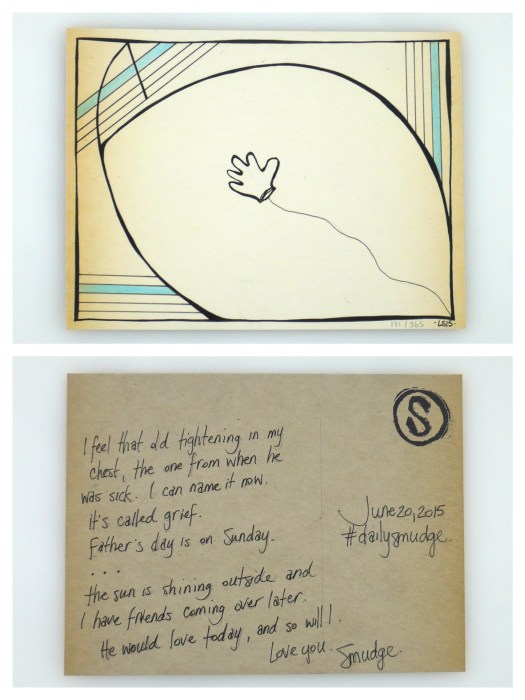 171/365 -LS15-
S
I feel that old tightening in my
chest, the one from when he
was sick. I can name it now.
it's called grief.
Father's day is on Sunday.
...
the sun is shining outside and
I have friends coming over later.
He would love today, and so will I.
Love you. Smudge.
June 20, 2015
#dailysmudge.